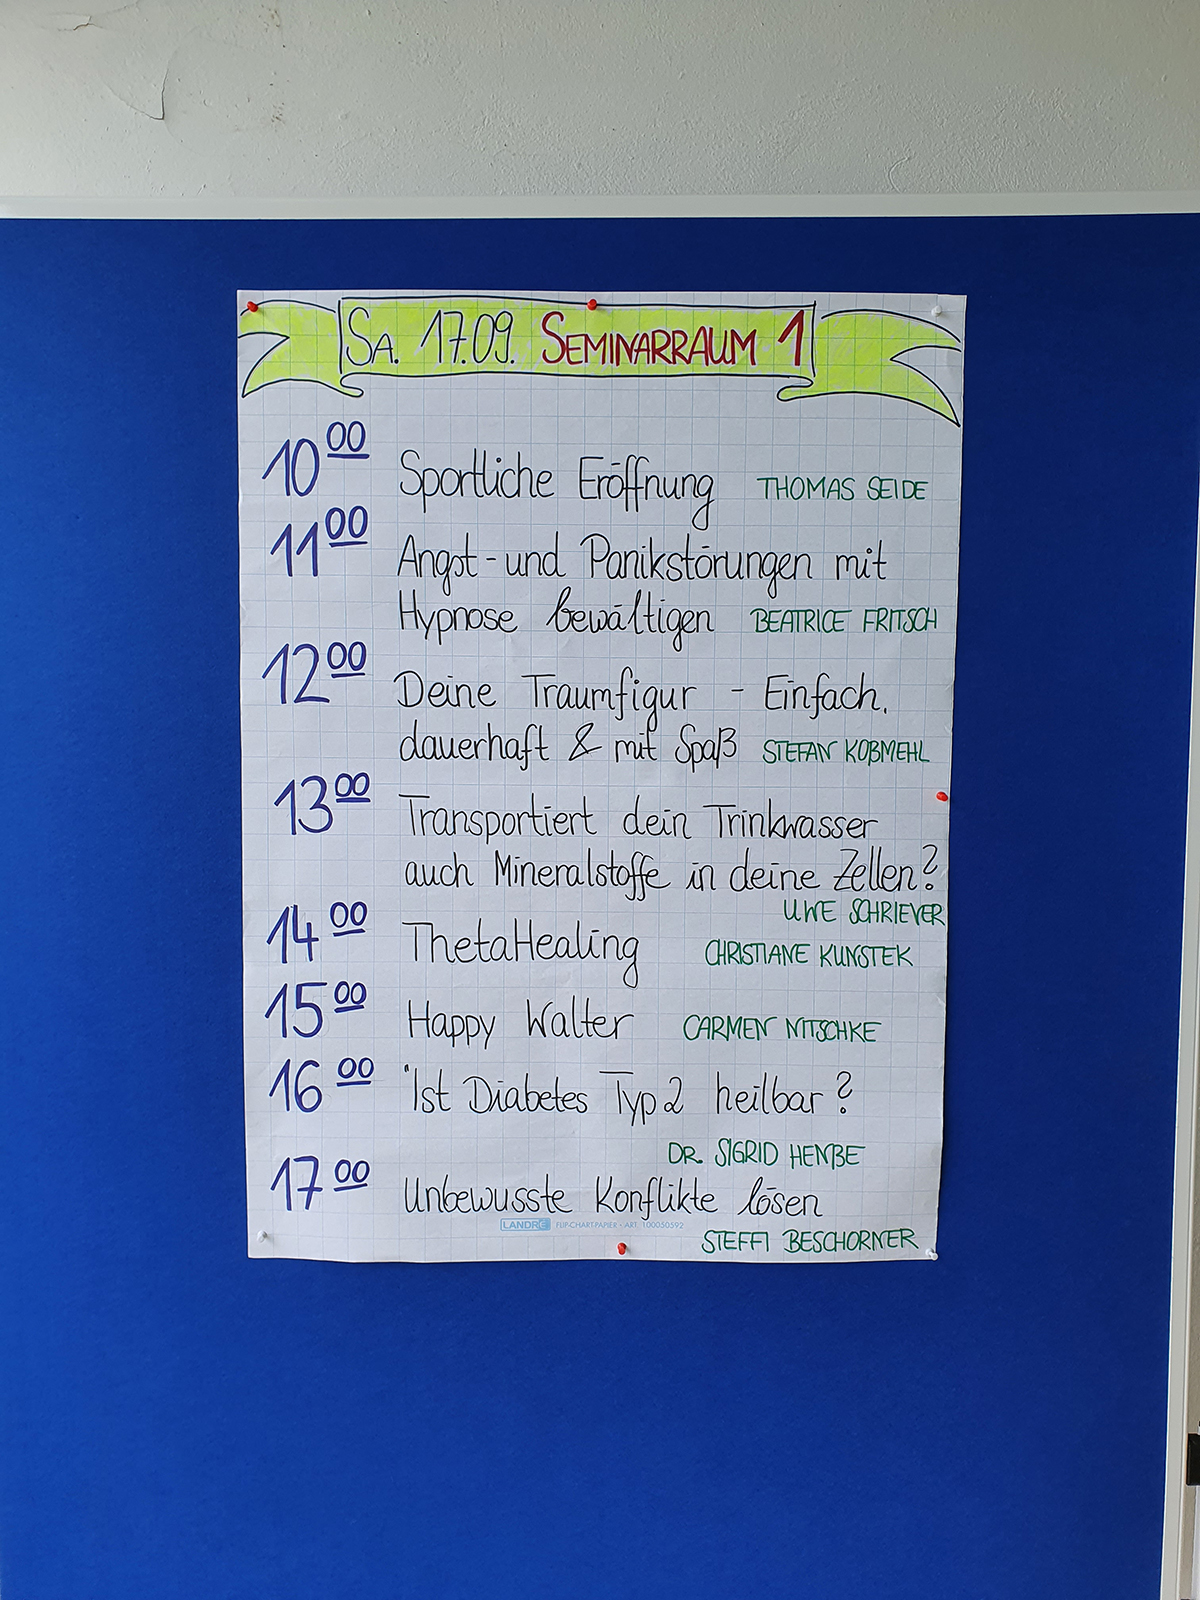 SA. 17.09. SEMINARRAUM 1
10 00 Sportliche Eröffnung THOMAS SEIDE
11 00 Angst- und Panikstörungen mit
Hypnose bewältigen BEATRICE FRITSCH
12 00 Deine Traumfigur - Einfach,
dauerhaft & mit Spaß STEFAN KOßMEHL
13 00 Transportiert dein Trinkwasser
auch Mineralstoffe in deine Zellen?
UWE SCHRIEVER
14 00 ThetaHealing CHRISTIANE KUNSTEK
15 00 Happy Walter CARMEN NITSCHKE
16 00 Ist Diabetes Typ 2 heilbar?
DR. SIGRID HENßE
17 00 Unbewusste Konflikte lösen
LANDRÉ FLIP-CHART-PAPIER • ART. 100050592
STEFFI BESCHORNER